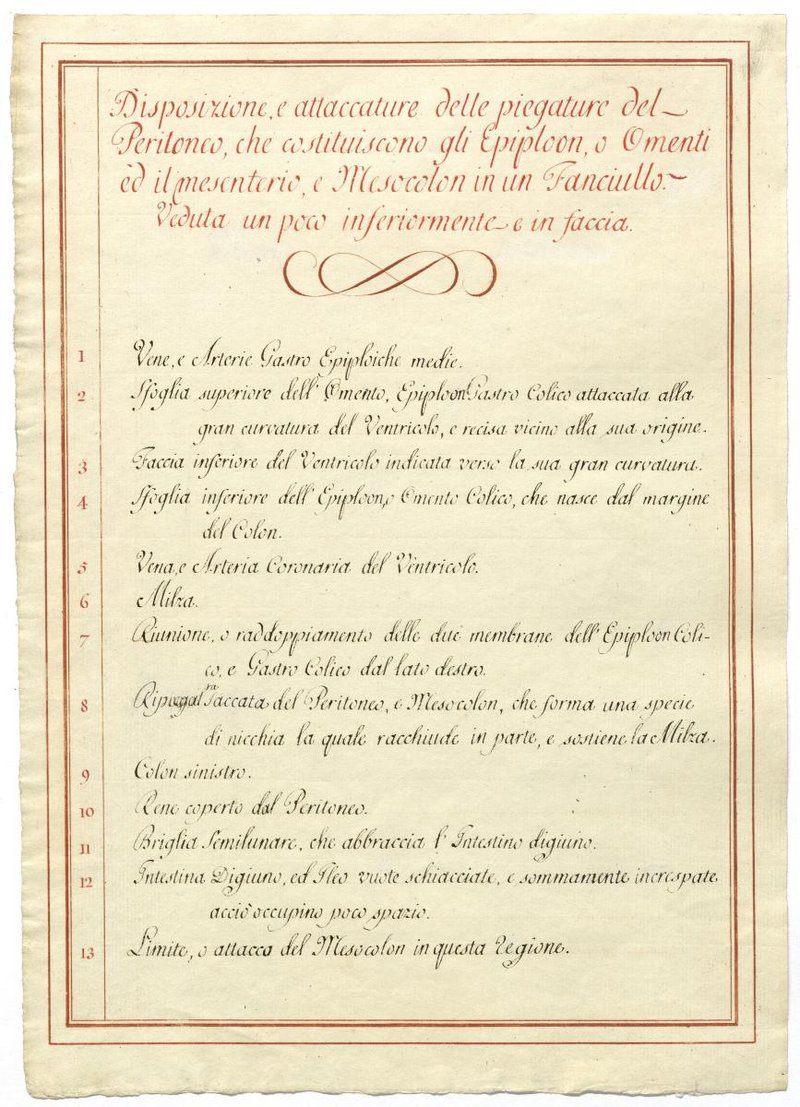 Disposizione, e attaccature delle piegature del
Peritoneo, che costituiscono gli Epiploon, o Omenti
èd il mesenterio, e Mesocolon in un Fanciullo.
Veduta un poco inferiormente e in faccia.
1 Vene, e Arterie Gastro Epiploiche medie.
2 Sfoglia superiore dell' Omento, Epiploon Gastro Colico attaccata alla
gran curvatura del Ventricolo, e recisa vicino alla sua origine.
3 Faccia inferiore del Ventricolo indicata verso la sua gran curvatura.
4 Sfoglia inferiore dell' Epiploon, o Omento Colico, che nasce dal margine
del Colon.
5 Vena, e Arteria Coronaria del Ventricolo.
6 Milza.
7 Riunione, o raddoppiamento delle due membrane dell' Epiploon Coli-
co, e Gastro Colico dal lato destro.
8 Saccata del Peritoneo, e Mesocolon, che forma una specie
di nicchia la quale racchiude in parte, e sostiene la Milza.
9 Colon sinistro.
10 Rene coperto dal Peritoneo.
11 Briglia Semilunare, che abbraccia l' Intestino digiuno.
12 Intestina Digiuno, ed Ileo vuote schiacciate, e sommamente increspate,
acciò occupino poco spazio.
13 Limite, o attacco del Mesocolon in questa Regione.